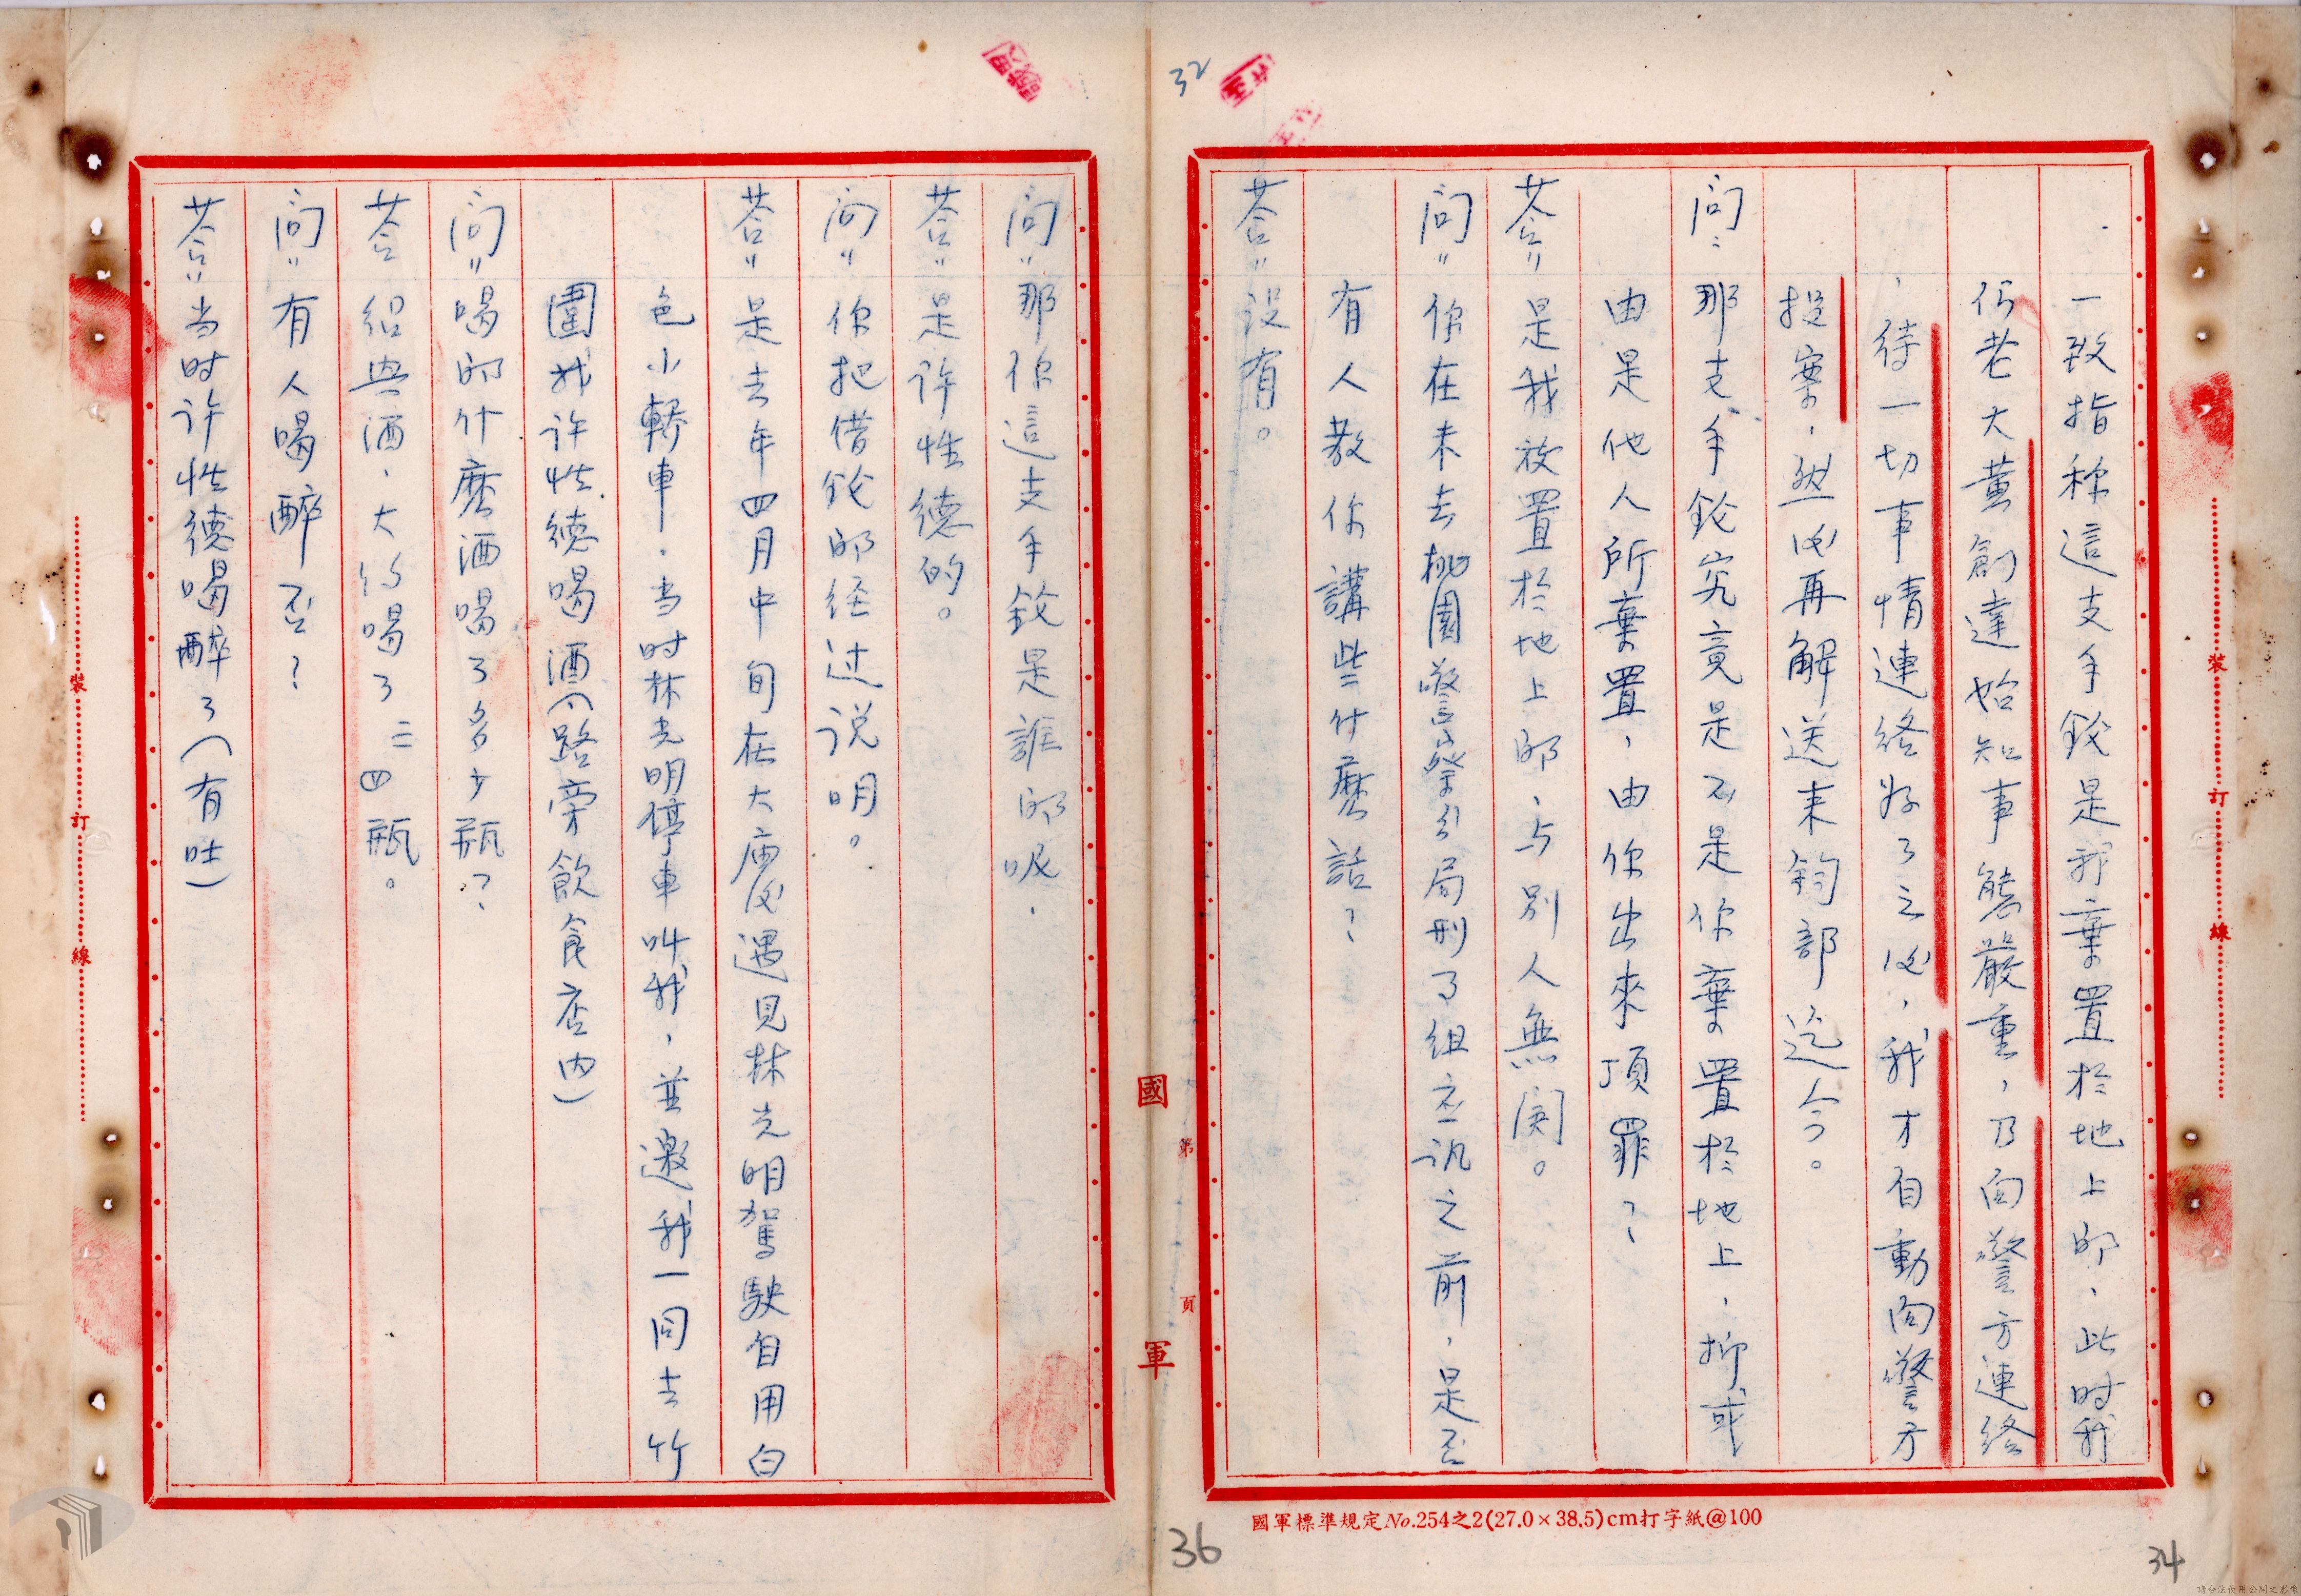 32
一致指称這支手鈗是我棄置於地上的、此时我
们老大黃創達始知事態嚴重，乃向警方連络
，待一切事情連络好了之後，我才自動向警方
投案，然後再解送来鈞部迄今。
問：那支手鈗究竟是不是你棄置於地上，抑或
由是他人所棄置，由你出來頂罪？
荅：是我放置於地上的、与别人無関。
問：你在未去桃園警察分局刑了组应讯之前，是否
有人教你講些什麽話？
荅：没有。
問：那你這支手鈗是誰的呢、
荅：是许性德的。
问：你把借鈗的経过说明。
荅：是去年四月中旬在大庙後遇見林光明駕駛自用白
色小轎車，当时林光明停車叫我，並邀我一同去竹
圍找许性德喝酒（路旁飲食店内）
問：喝的什麽酒喝了多少瓶？
荅 绍興酒、大约喝了三四瓶。
問：有人喝醉否？
荅：当时许性德喝醉了（有吐）
裝 訂 線
裝 訂 線
國 軍
第 頁
國軍標準規定No.254之2(27.0×38.5)cm打字紙@100
36
34
請合法使用公開之影像